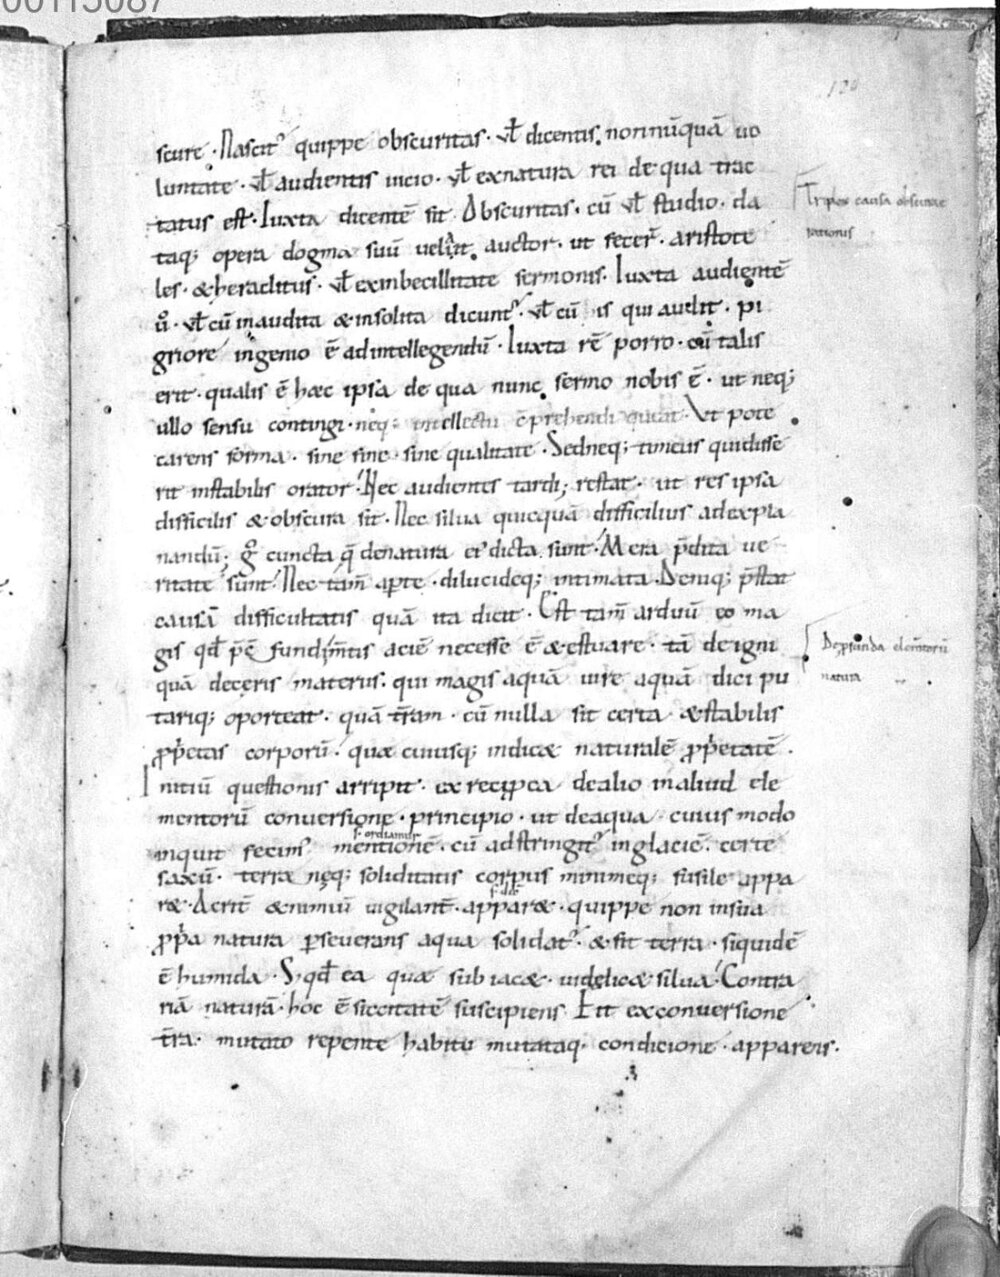 00115087
120
scure · Nascit᷑ quippe obscuritas · ł dicentis. nonnūquā uo
luntate · ł audientis uicio · ł exnatura rei de qua trac
tatus est · Iuxta dicentē sit Obscuritas · cū ł studio · da
taq; opera dogma suū uelat. auctor · ut fecer̄ · aristote
les · & heraclitus · ł exinbecillitate sermonis. Iuxta audientē
ū · ł cū inaudita & insolita dicunt᷑ · ł cū is qui audit · pi
griore ingenio ē adintellegendū · Iuxta rē porro · cū talis
erit · qualis ē hæc ipsa de qua nunc sermo nobis ē · ut neq;
ullo sensu contingi · neq; intellectu cōprehendi queat · Vt pote
carens forma · sine fine · sine qualitate · Sed neq; timeus qui disse
rit instabilis orator · Nec audientes tardi; restat · ut res ipsa
difficilis & obscura sit · Nec silua quicquā difficilius ad expla
nandū; gͦ cuncta q̄ denatura ei᷒ dicta sunt · Mera p̄dita ue
ritate sunt · Nec tam̄ apte · dilucideq; intimata · Deniq; p̄stat
causā difficultatis quā ita dicit · Est tam̄ arduū eo ma
gis qđ
aciē necesse ē & estuare · tā de igni
quā deceris materiis. qui magis aquā iure aquā dici pu
tariq; oporteat · quā t̄ram · cū nulla sit certa · & stabilis
p̱p̄etas corporū · quæ cuiusq; indicæ naturalē p̱p̄etatē ·
Initiū questionis arripit · ex reciproca de alio in aliud ele
mentorū conuersione · principio · ut de aqua · cuius modo
s· ordiamur
inquit fecim᷒ mentionē · cū adstringit᷑ inglaciē · certe
saxū · terrenęq; soliditatis corpus minimeq; fusile appa
ræ · Acerit & nimiū uigilant̄ · apparæ · quippe non in sua
p̱p̄a natura p̱seuerans aqua solidat᷑ · & fit terra · siquidē
ē humida · S; qđ ea quæ subiacæ · uidelicæ silua · Contra
riā naturā · hoc ē siccitatē suscipiens · Fit ex conuersione
t̄ra · mutato repente habitu mutataq · condicione · apparens ·
Triplex causa obscurae
rationis
De
elem̄torū
natura